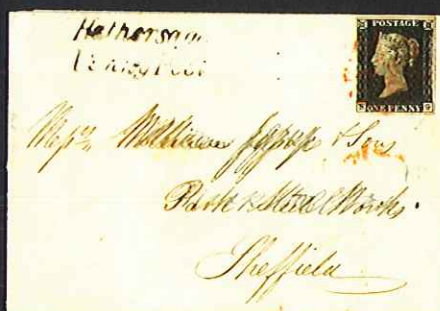 Hathersage
Penny Post
POSTAGE
ONE PENNY
Messrs William Jessop & Sons
Park & Steel Works.
Sheffield